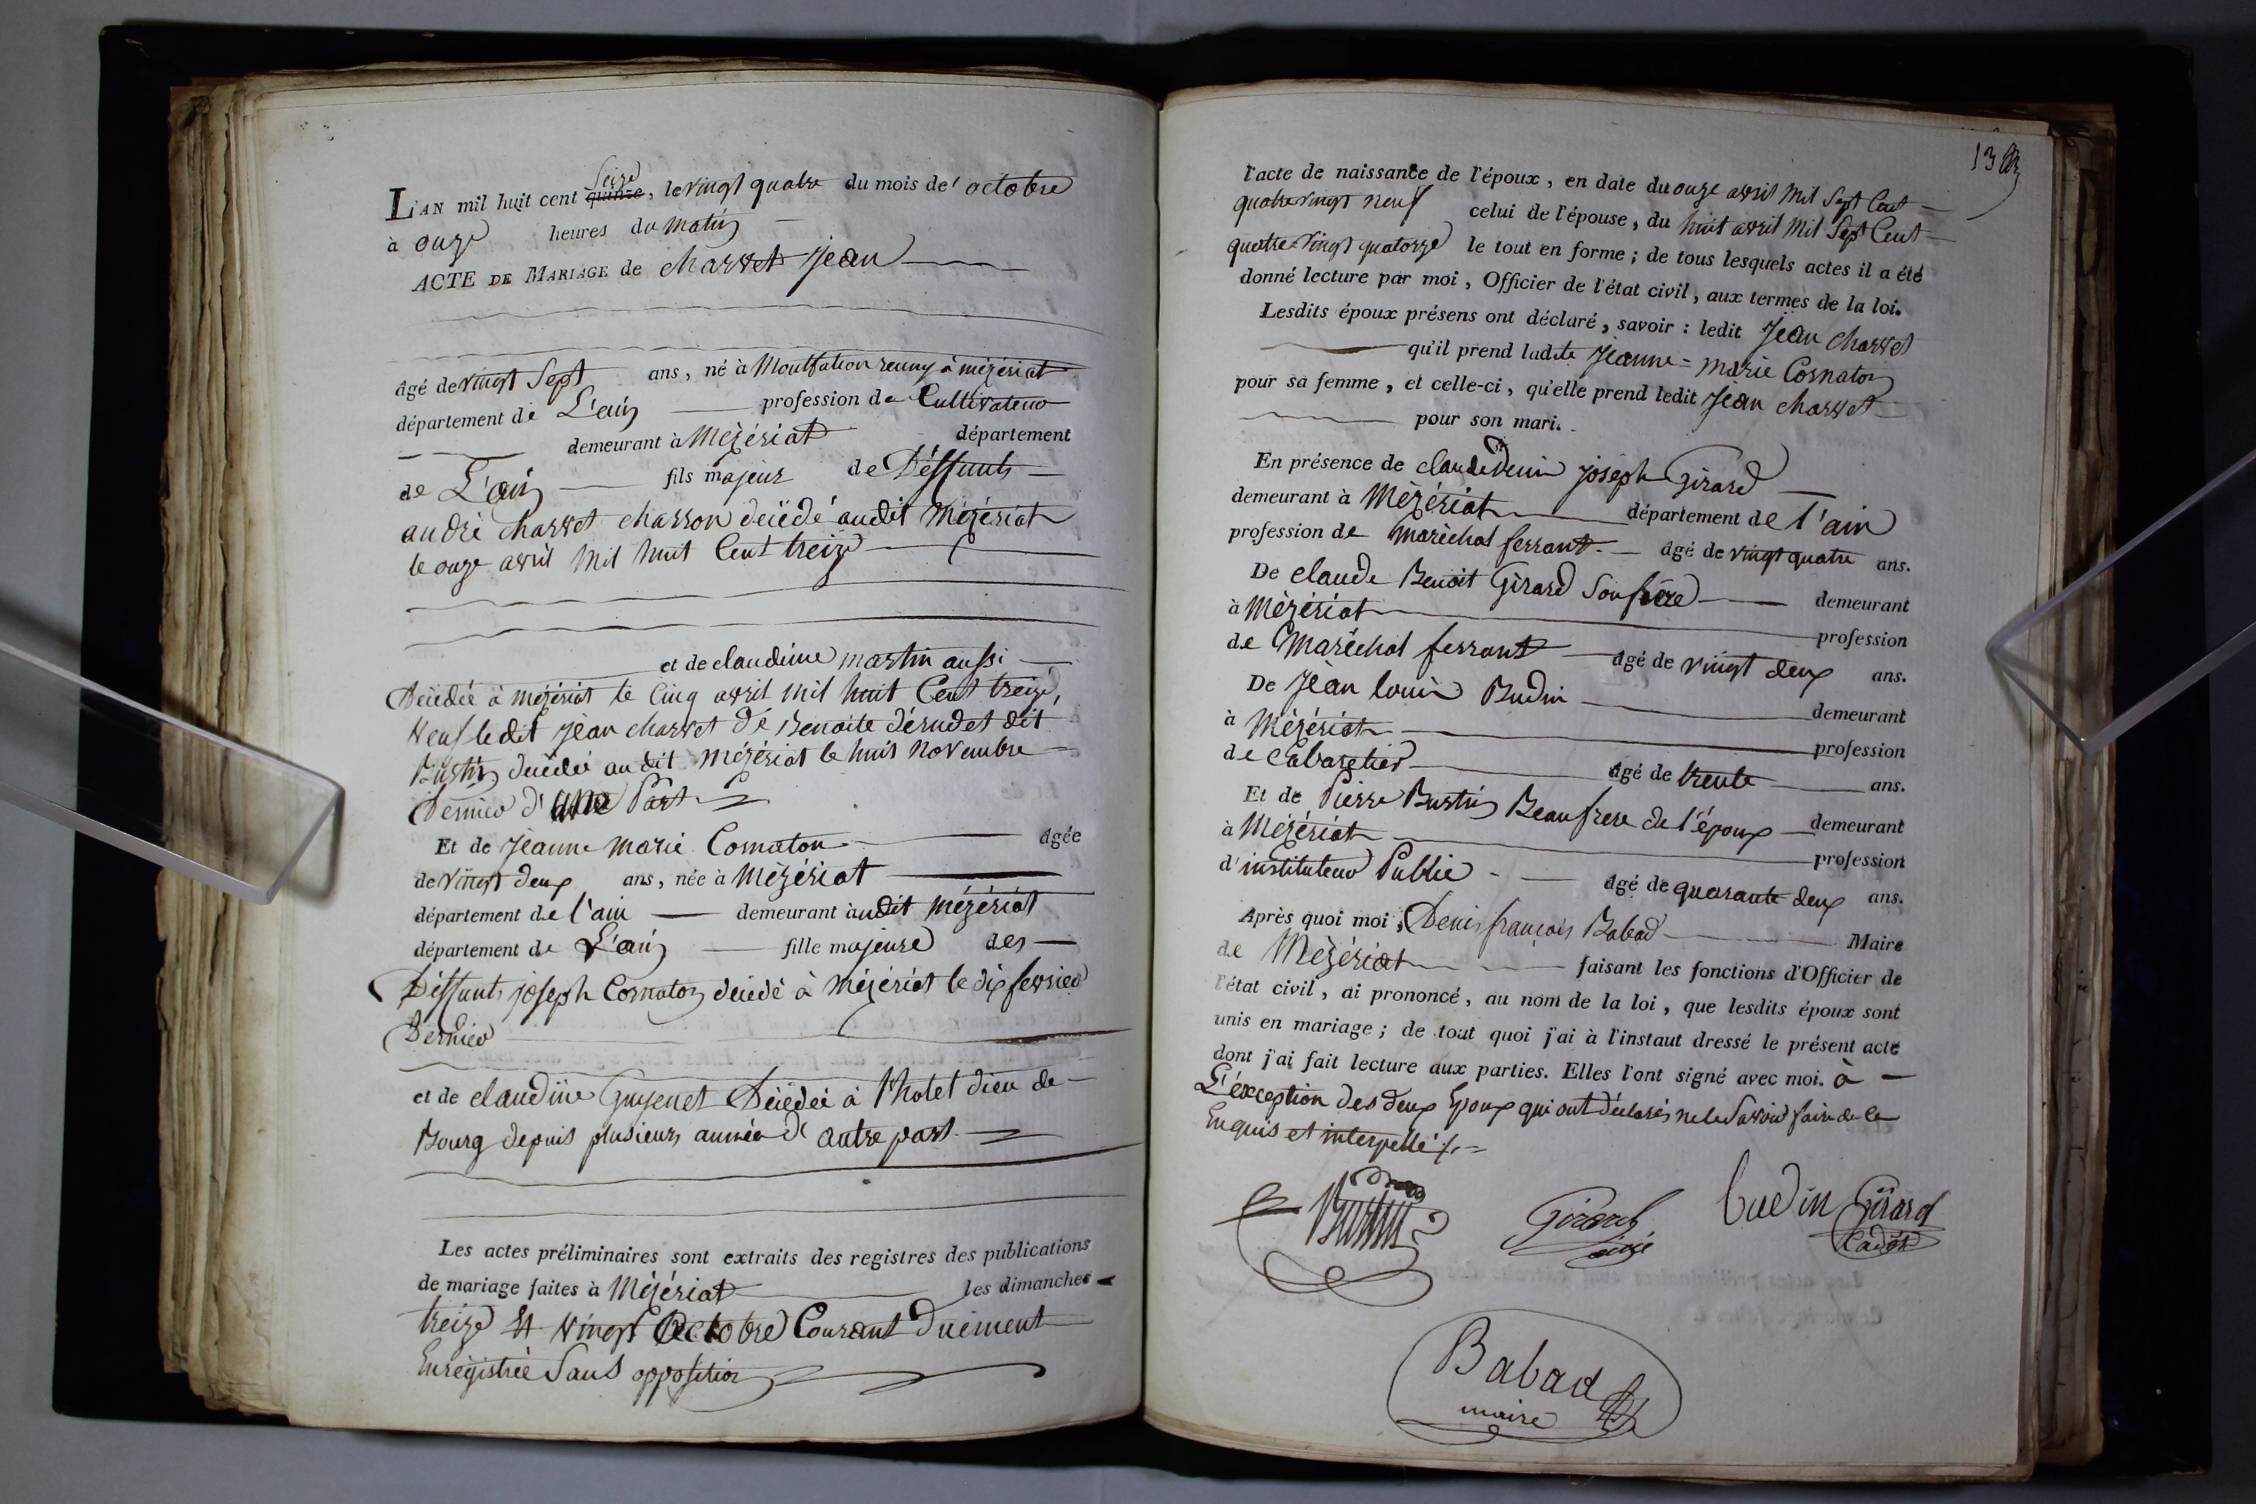 L'AN mil huit cent quinze seize, le vingt quatre du mois de octobre
à onze heures du matin
ACTE DE MARIAGE de charvet Jean
âgé de vingt Sept ans, né à Montfalcon reuny à mézériat
département de L'ain profession de Cultivateur
demeurant à Mézériat département
de L'ain fils majeur de Déffunts
andré charvet charron décédé audit Mézériat
le onze avril mil huit Cent treize
et de claudine martin aussi
Décédée à mézériat le Cinq avril mil huit Cent treize,
veuf ledit Jean charvet de Benoite dérudet dit
Burtin décédée audit Mézériat le huit novembre
Dernier d'une Part
Et de Jeanne Marie Cornaton âgée
de vingt deux ans, née à Mézériat
département de l'ain demeurant audit Mézériat
département de L'ain fille majeure des
Déffunts joseph Cornaton décédé à Mézériat le dix fevrier
Dernier
et de claudine Guyenet Décédée à l'hotel dieu de
Bourg depuis plusieurs année d'autre part
Les actes préliminaires sont extraits des registres des publications
de mariage faites à Mézériat les dimanches
treize Et vingt Octobre Courant duement
Enregistrée Sans opposition
13
l'acte de naissance de l'époux, en date du onze avril Mil Sept Cent
quatre vingt neuf celui de l'épouse, du huit avril Mil Sept Cent
quatre-vingt quatorze le tout en forme; de tous lesquels actes il a été
donné lecture par moi, Officier de l'état civil, aux termes de la loi.
Lesdits époux présens ont déclaré, savoir: ledit Jean charvet
qu'il prend ladite Jeanne=marie Cornaton
pour sa femme, et celle-ci, qu'elle prend ledit Jean charvet
pour son mari.
En présence de claude Denis joseph Girard
demeurant à Mézériat département de l'ain
profession de maréchal ferrant. âgé de vingt quatre ans.
De claude Benoit Girard Son frère demeurant
à Mézériat profession
de Maréchal ferrant âgé de vingt deux ans.
De Jean louis Budin demeurant
à Mézériat profession
de Cabaretier âgé de trente ans.
Et de Pierre Burtin Beaufrere de l'époux demeurant
à Mézériat profession
d'instituteur Public âgé de quarante deux ans.
Après quoi moi, Denis françois Babad Maire
de Mézériat faisant les fonctions d'Officier de
l'état civil, ai prononcé, au nom de la loi, que lesdits époux sont
unis en mariage; de tout quoi j'ai à l'instaut dressé le présent acte
dont j'ai fait lecture aux parties. Elles l'ont signé avec moi. à
L'éxception des deux Epoux qui ont déclarés ne le Savoir faire de ce
Enquis et interpellé
Burtin Girard ainé budin Girard Cadet
Babad
maire